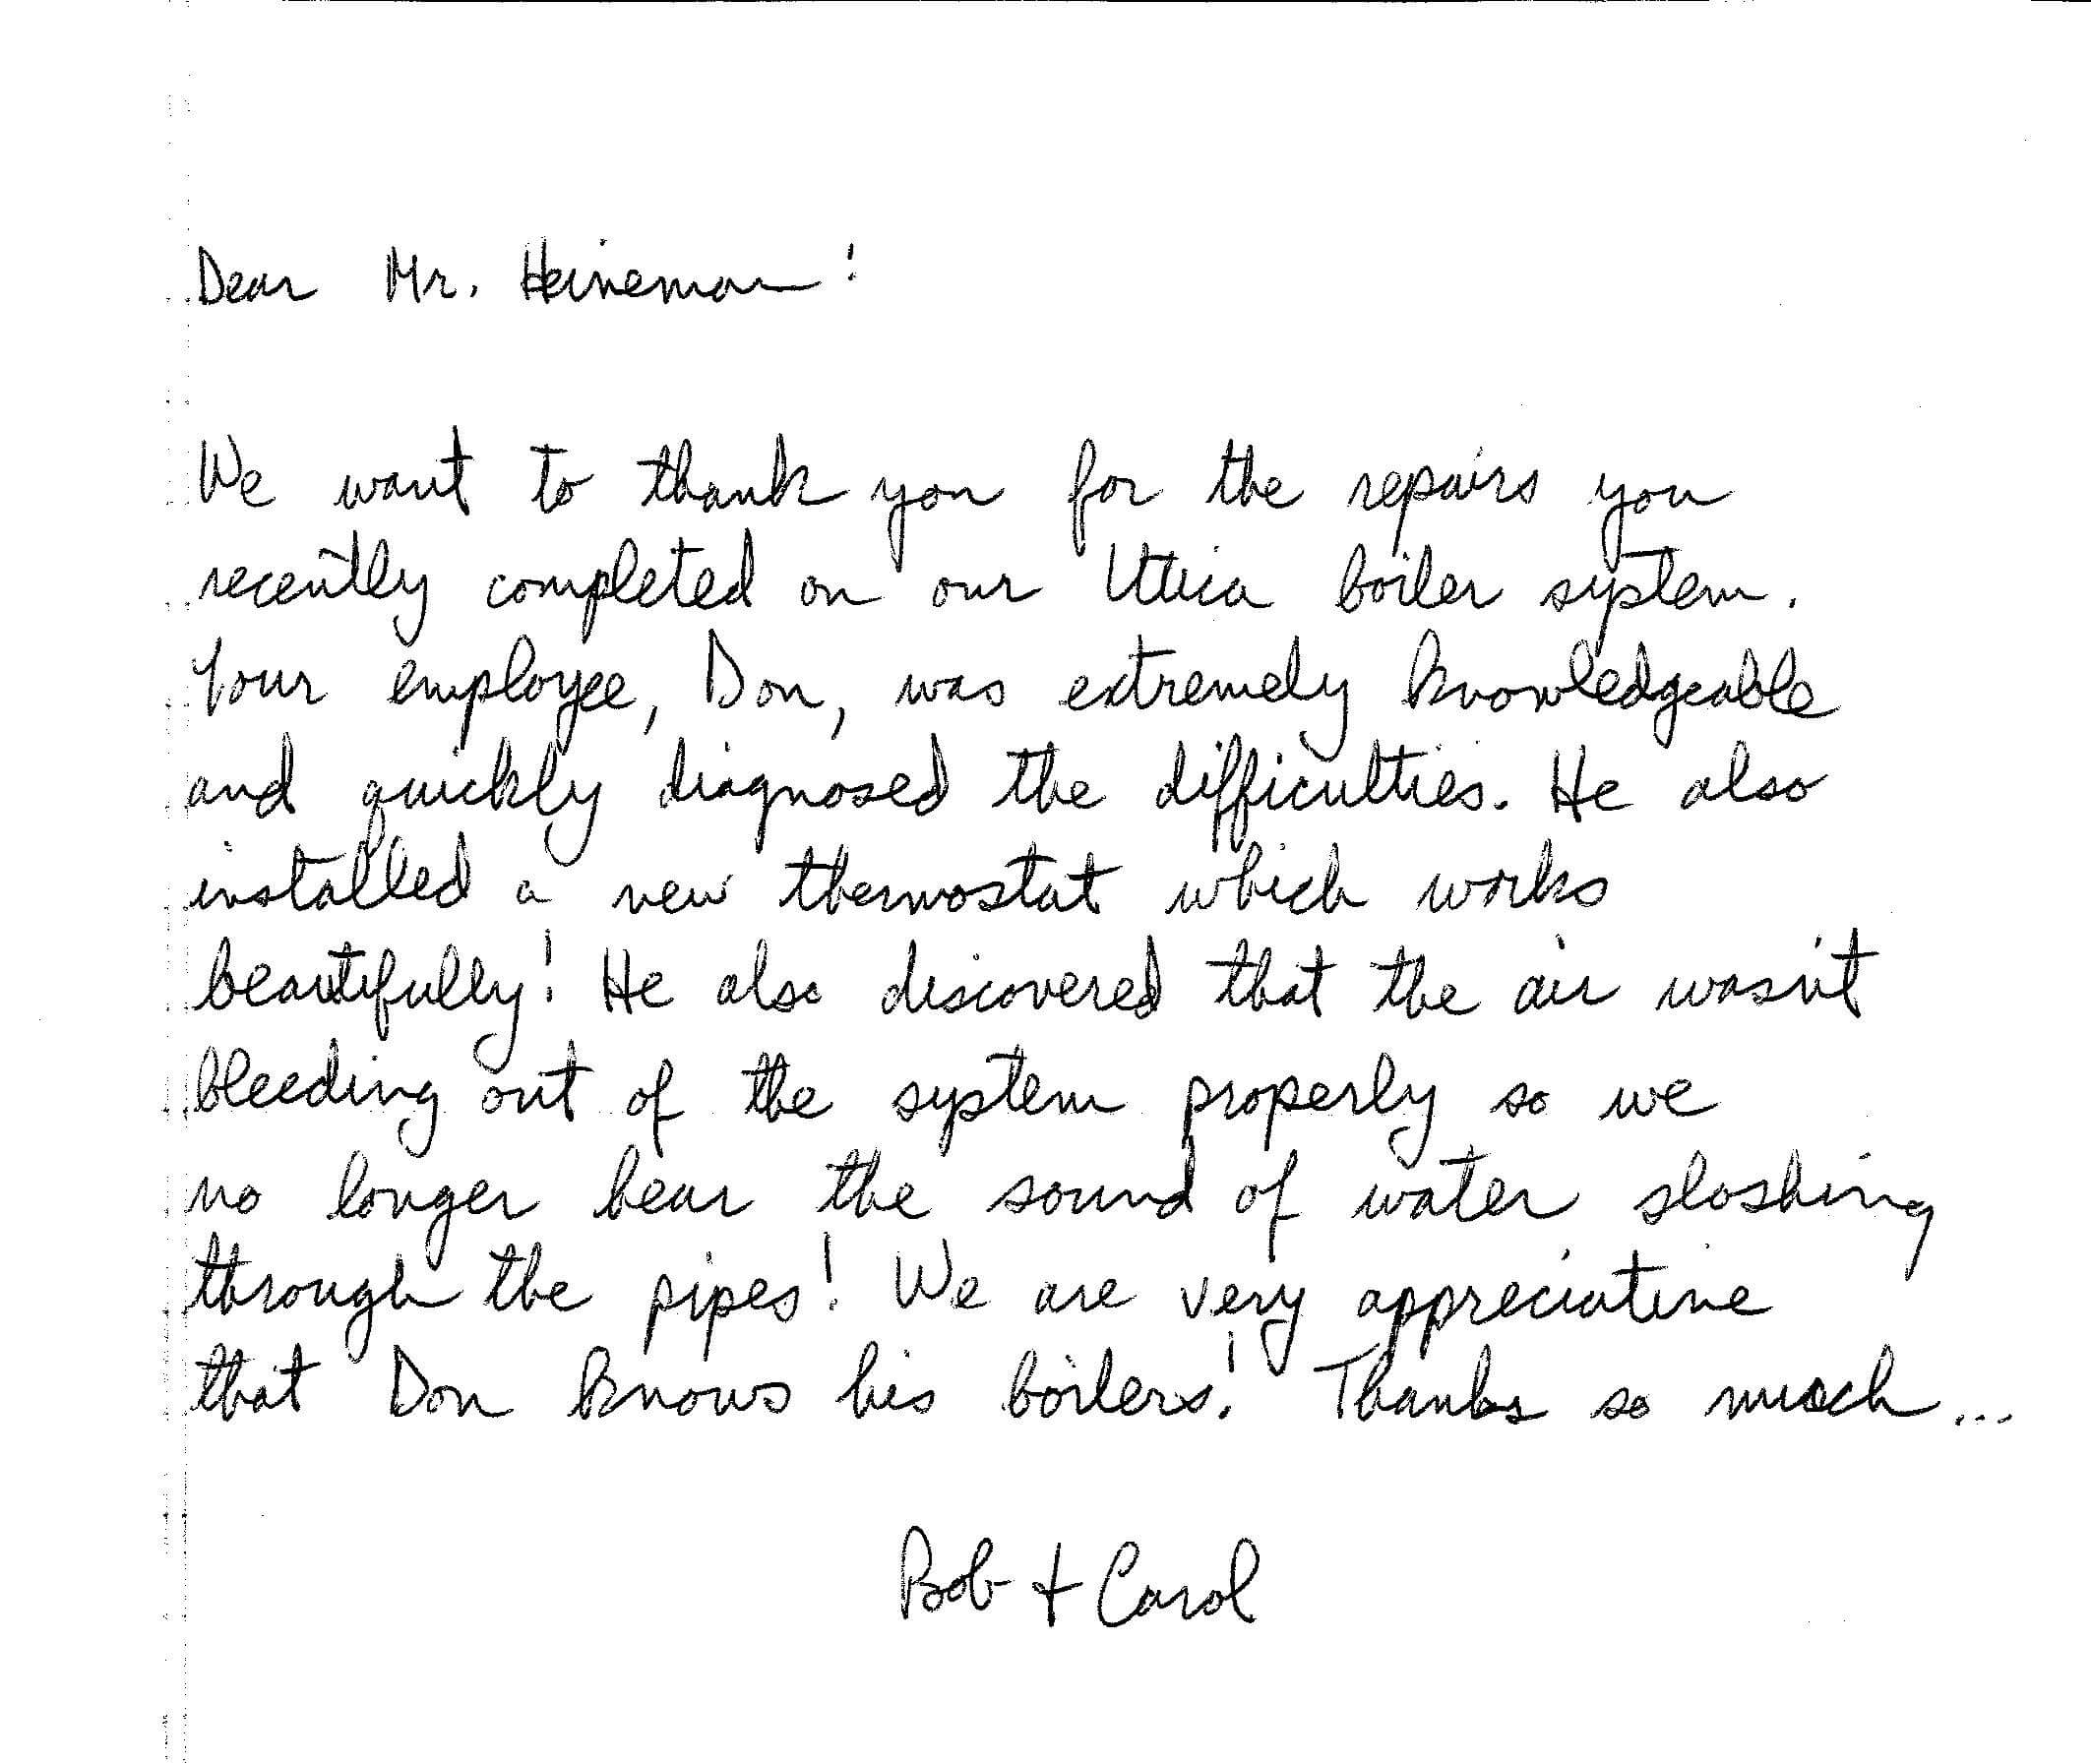 Dear Mr. Heineman:
We want to thank you for the repairs you
recently completed on our Utica boiler system.
Your employee, Don, was extremely knowledgeable
and quickly diagnosed the difficulties. He also
installed a new thermostat which works
beautifully! He also discovered that the air wasn't
bleeding out of the system properly so we
no longer hear the sound of water sloshing
through the pipes! We are very appreciative
that Don knows his boilers! Thanks so much...
Bob + Carol